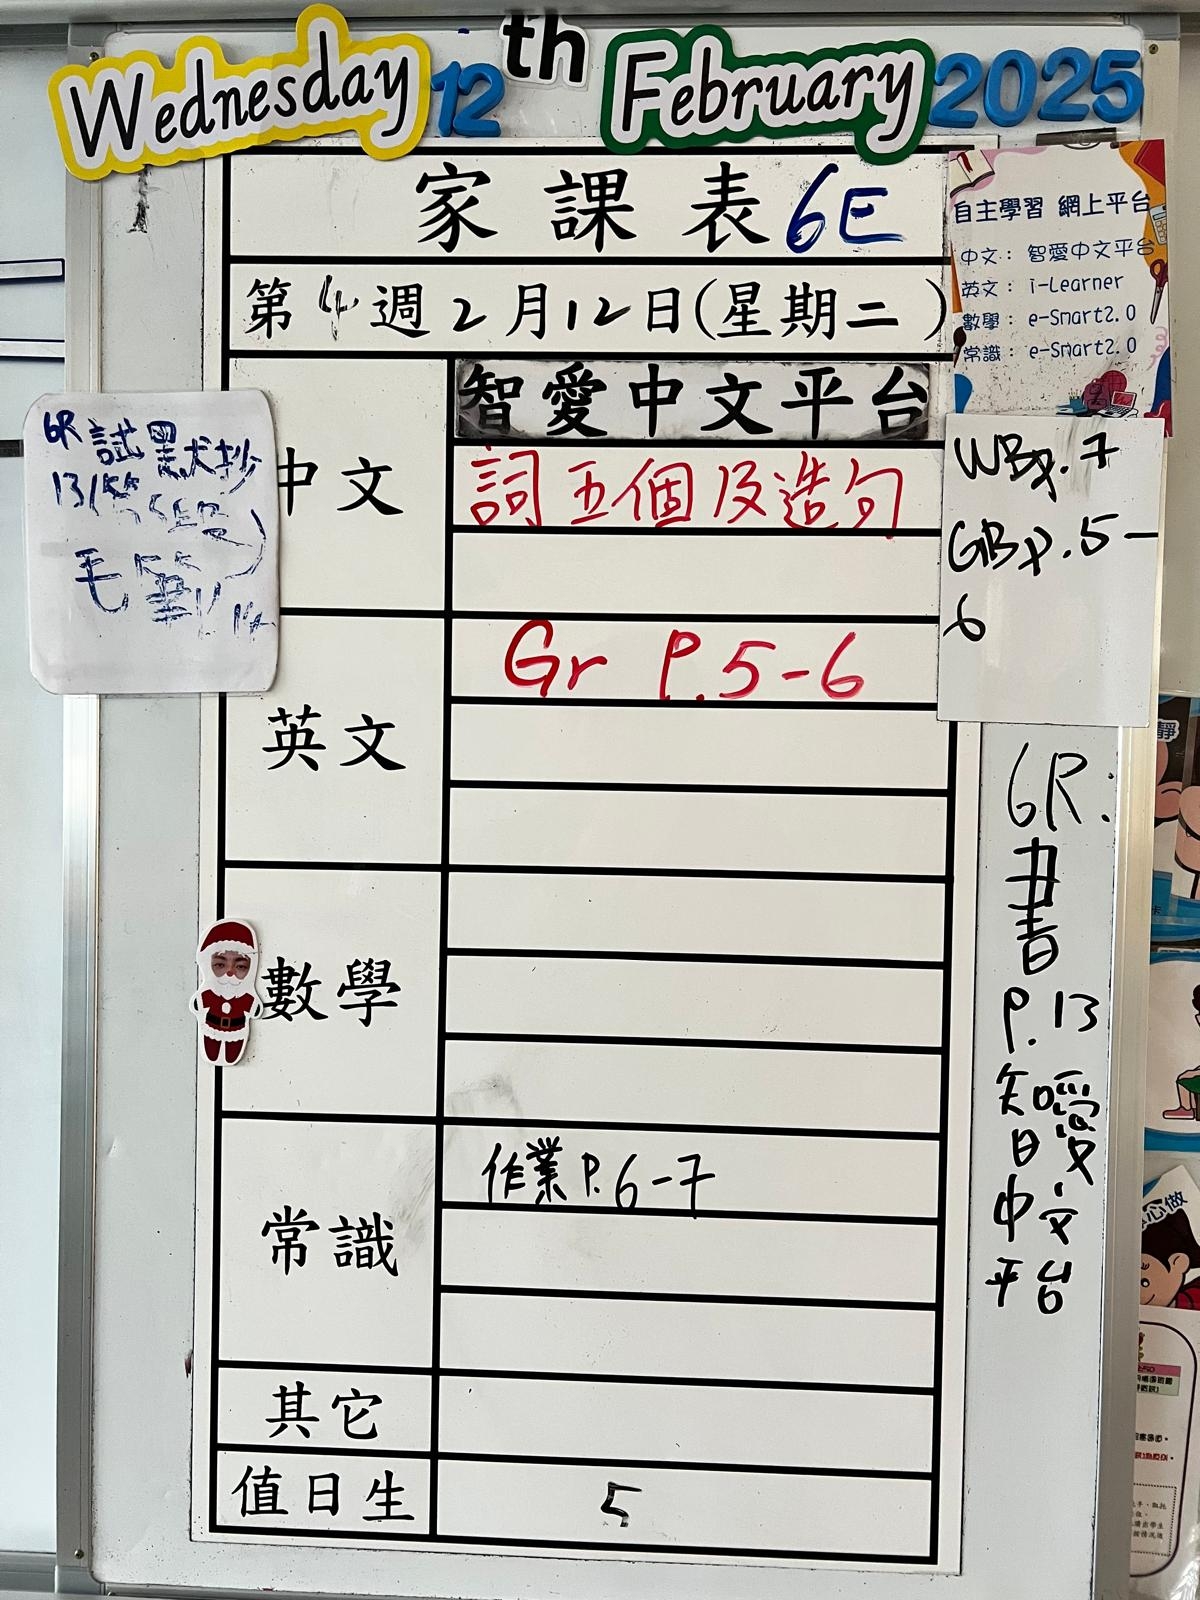 Wednesday 12th February 2025
家課表 6E
第4週2月12日(星期二)
自主學習 網上平台
中文：智愛中文平台
英文：i-Learner
數學：e-Smart2.0
常識：e-Smart2.0
中文
智愛中文平台
詞五個及造句
6R 試默抄
13/
毛筆
WBp.7
GBp.5-
6
英文
Gr P.5-6
6R:
書
P.13
智愛
中文
平台
數學
常識
作業P.6-7
其它
值日生
5
靜
心做